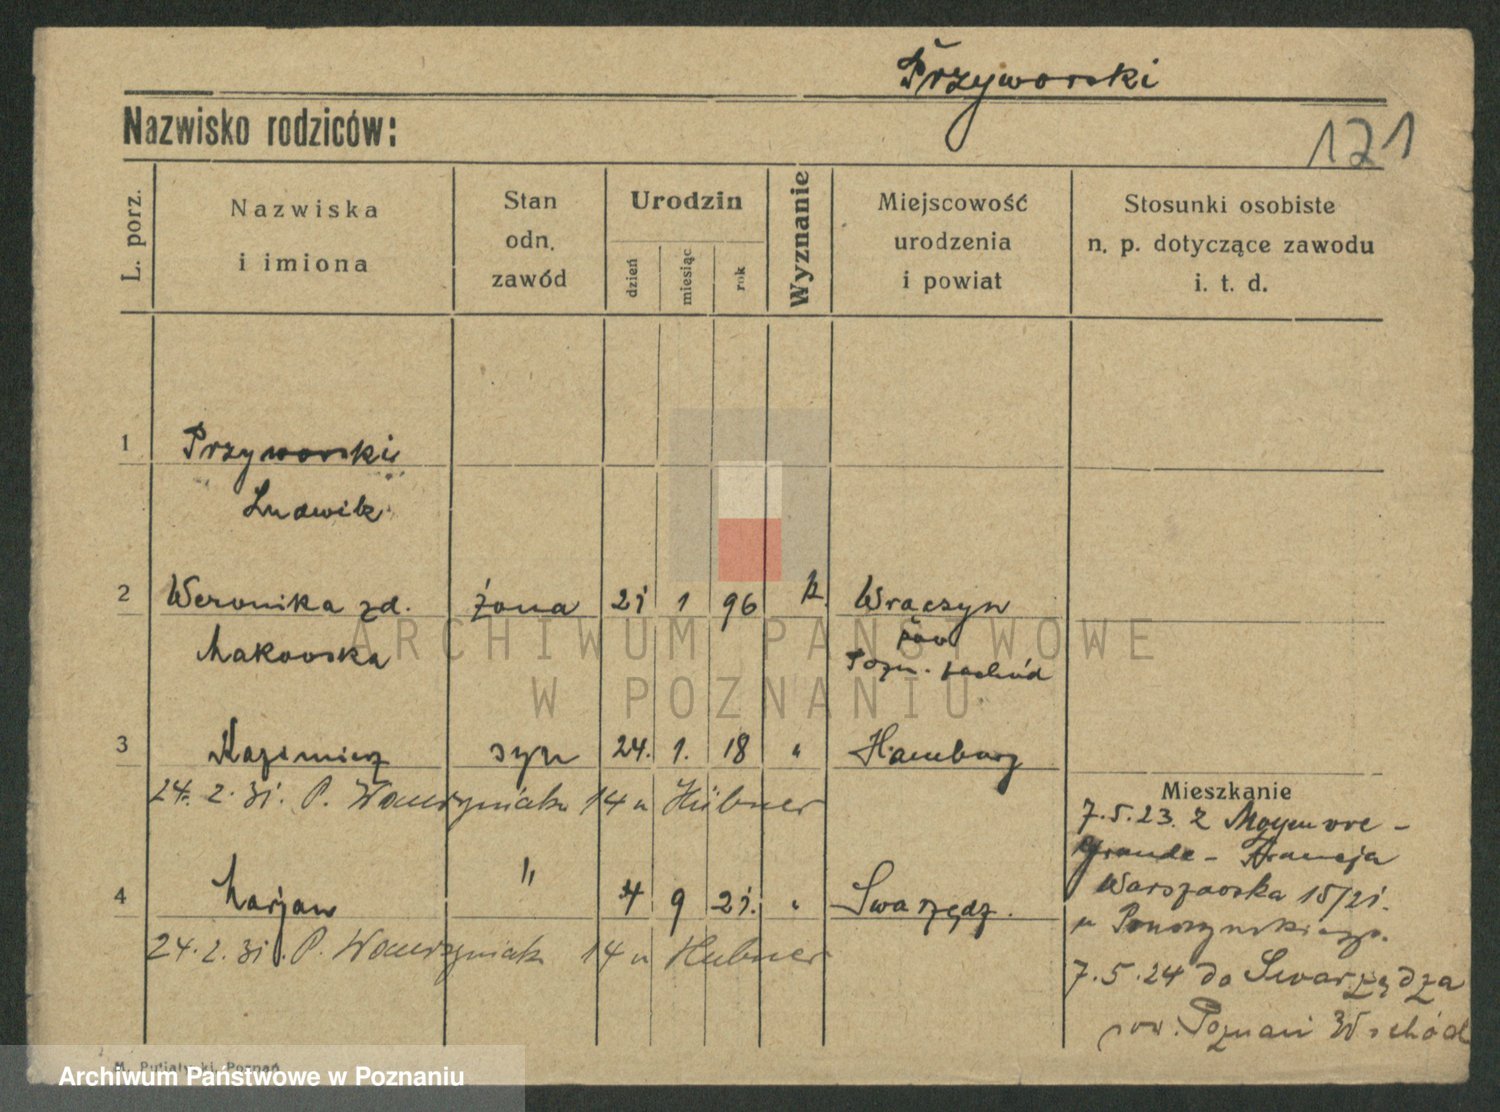 Przyworski
Nazwisko rodziców:
121
L. porz.
Nazwiska
i imiona
Stan
odn.
zawód
Urodzin
dzień
miesiąc
rok
Wyznanie
Miejscowość
urodzenia
i powiat
Stosunki osobiste
n. p. dotyczące zawodu
i. t. d.
1 Przyworski
Ludwik
2 Weronika zd. żona 21 1 96 k. Wrączyn
Makowska pow
Pozn. zachód
3 Kazimierz syn 24. 1. 18 " Hamburg
24. 2. 31. P. Wawrzyniaka 14 u Hübner
Mieszkanie
7.5.23. z
Grande - Francja
4 Marjan " 4 9 21. " Swarzędz.
Warszawska 15/21.
u
24. 2. 31. P. Wawrzyniaka 14 u Hubner
7.5.24 do Swarzędza
pow. Poznań Wschód
M. Putiatycki, Poznań
ARCHIWUM PAŃSTWOWE
W POZNANIU
Archiwum Państwowe w Poznaniu